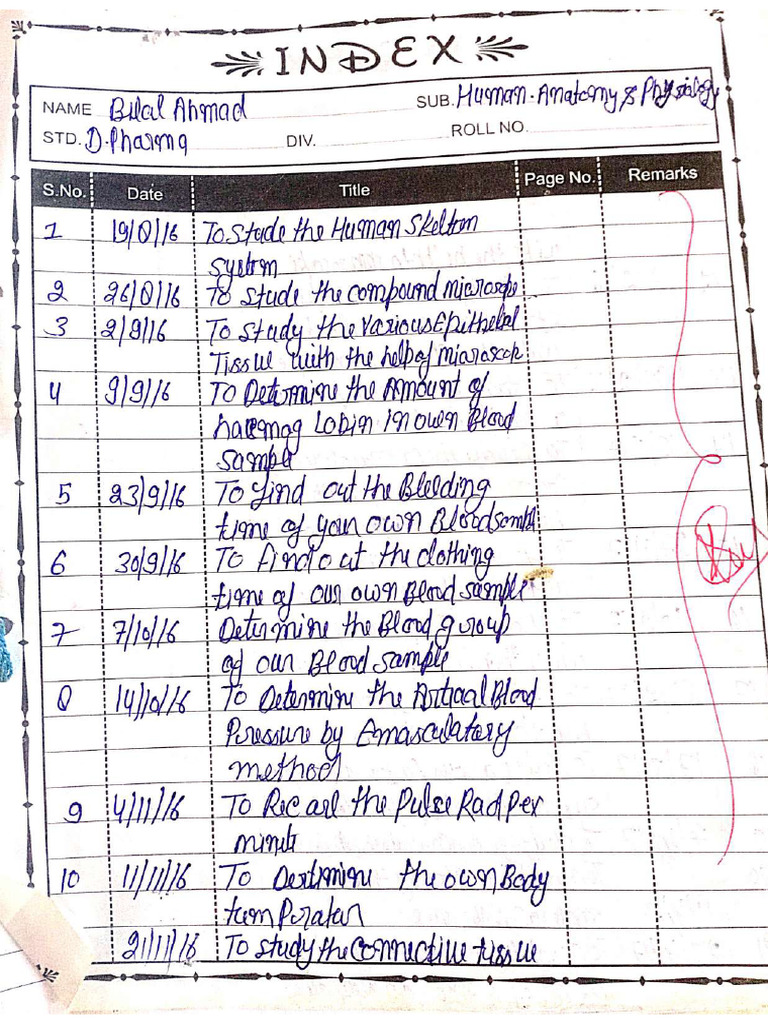 INDEX
NAME Bilal Ahmad SUB. Human Anatomy & Physiology
STD. D.Pharma DIV. ROLL NO.
S.No. Date Title Page No. Remarks
1 19/8/16 To Stude the Human Skeltom
systm
2 26/8/16 To Stude the compound miarosope
3 2/9/16 To Study the Various Epithelial
Tissue with the help of miaroscop
4 9/9/16 To Determine the Amount of
haemog Lobin in own Blood
sample
5 23/9/16 To find out the Bleeding
time of your own Blood sample
6 30/9/16 To find out the clothing
time of our own Blood sample
7 7/10/16 Determine the Blood group
of our Blood sample
8 14/10/16 To Determine the Artiaal Blood
Pressure by Emasculatory
method
9 4/11/16 To Recard the Pulse Rad Per
minute
10 11/11/16 To Dertimine the own Body
tem Peratur
21/11/16 To study the connective tissue